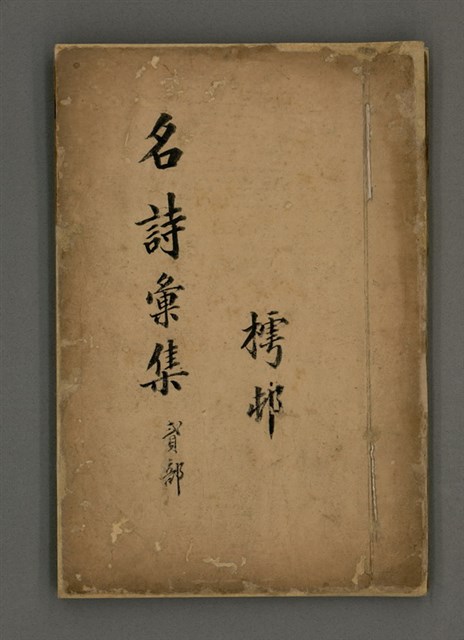 樗邨
名詩彙集 貳部